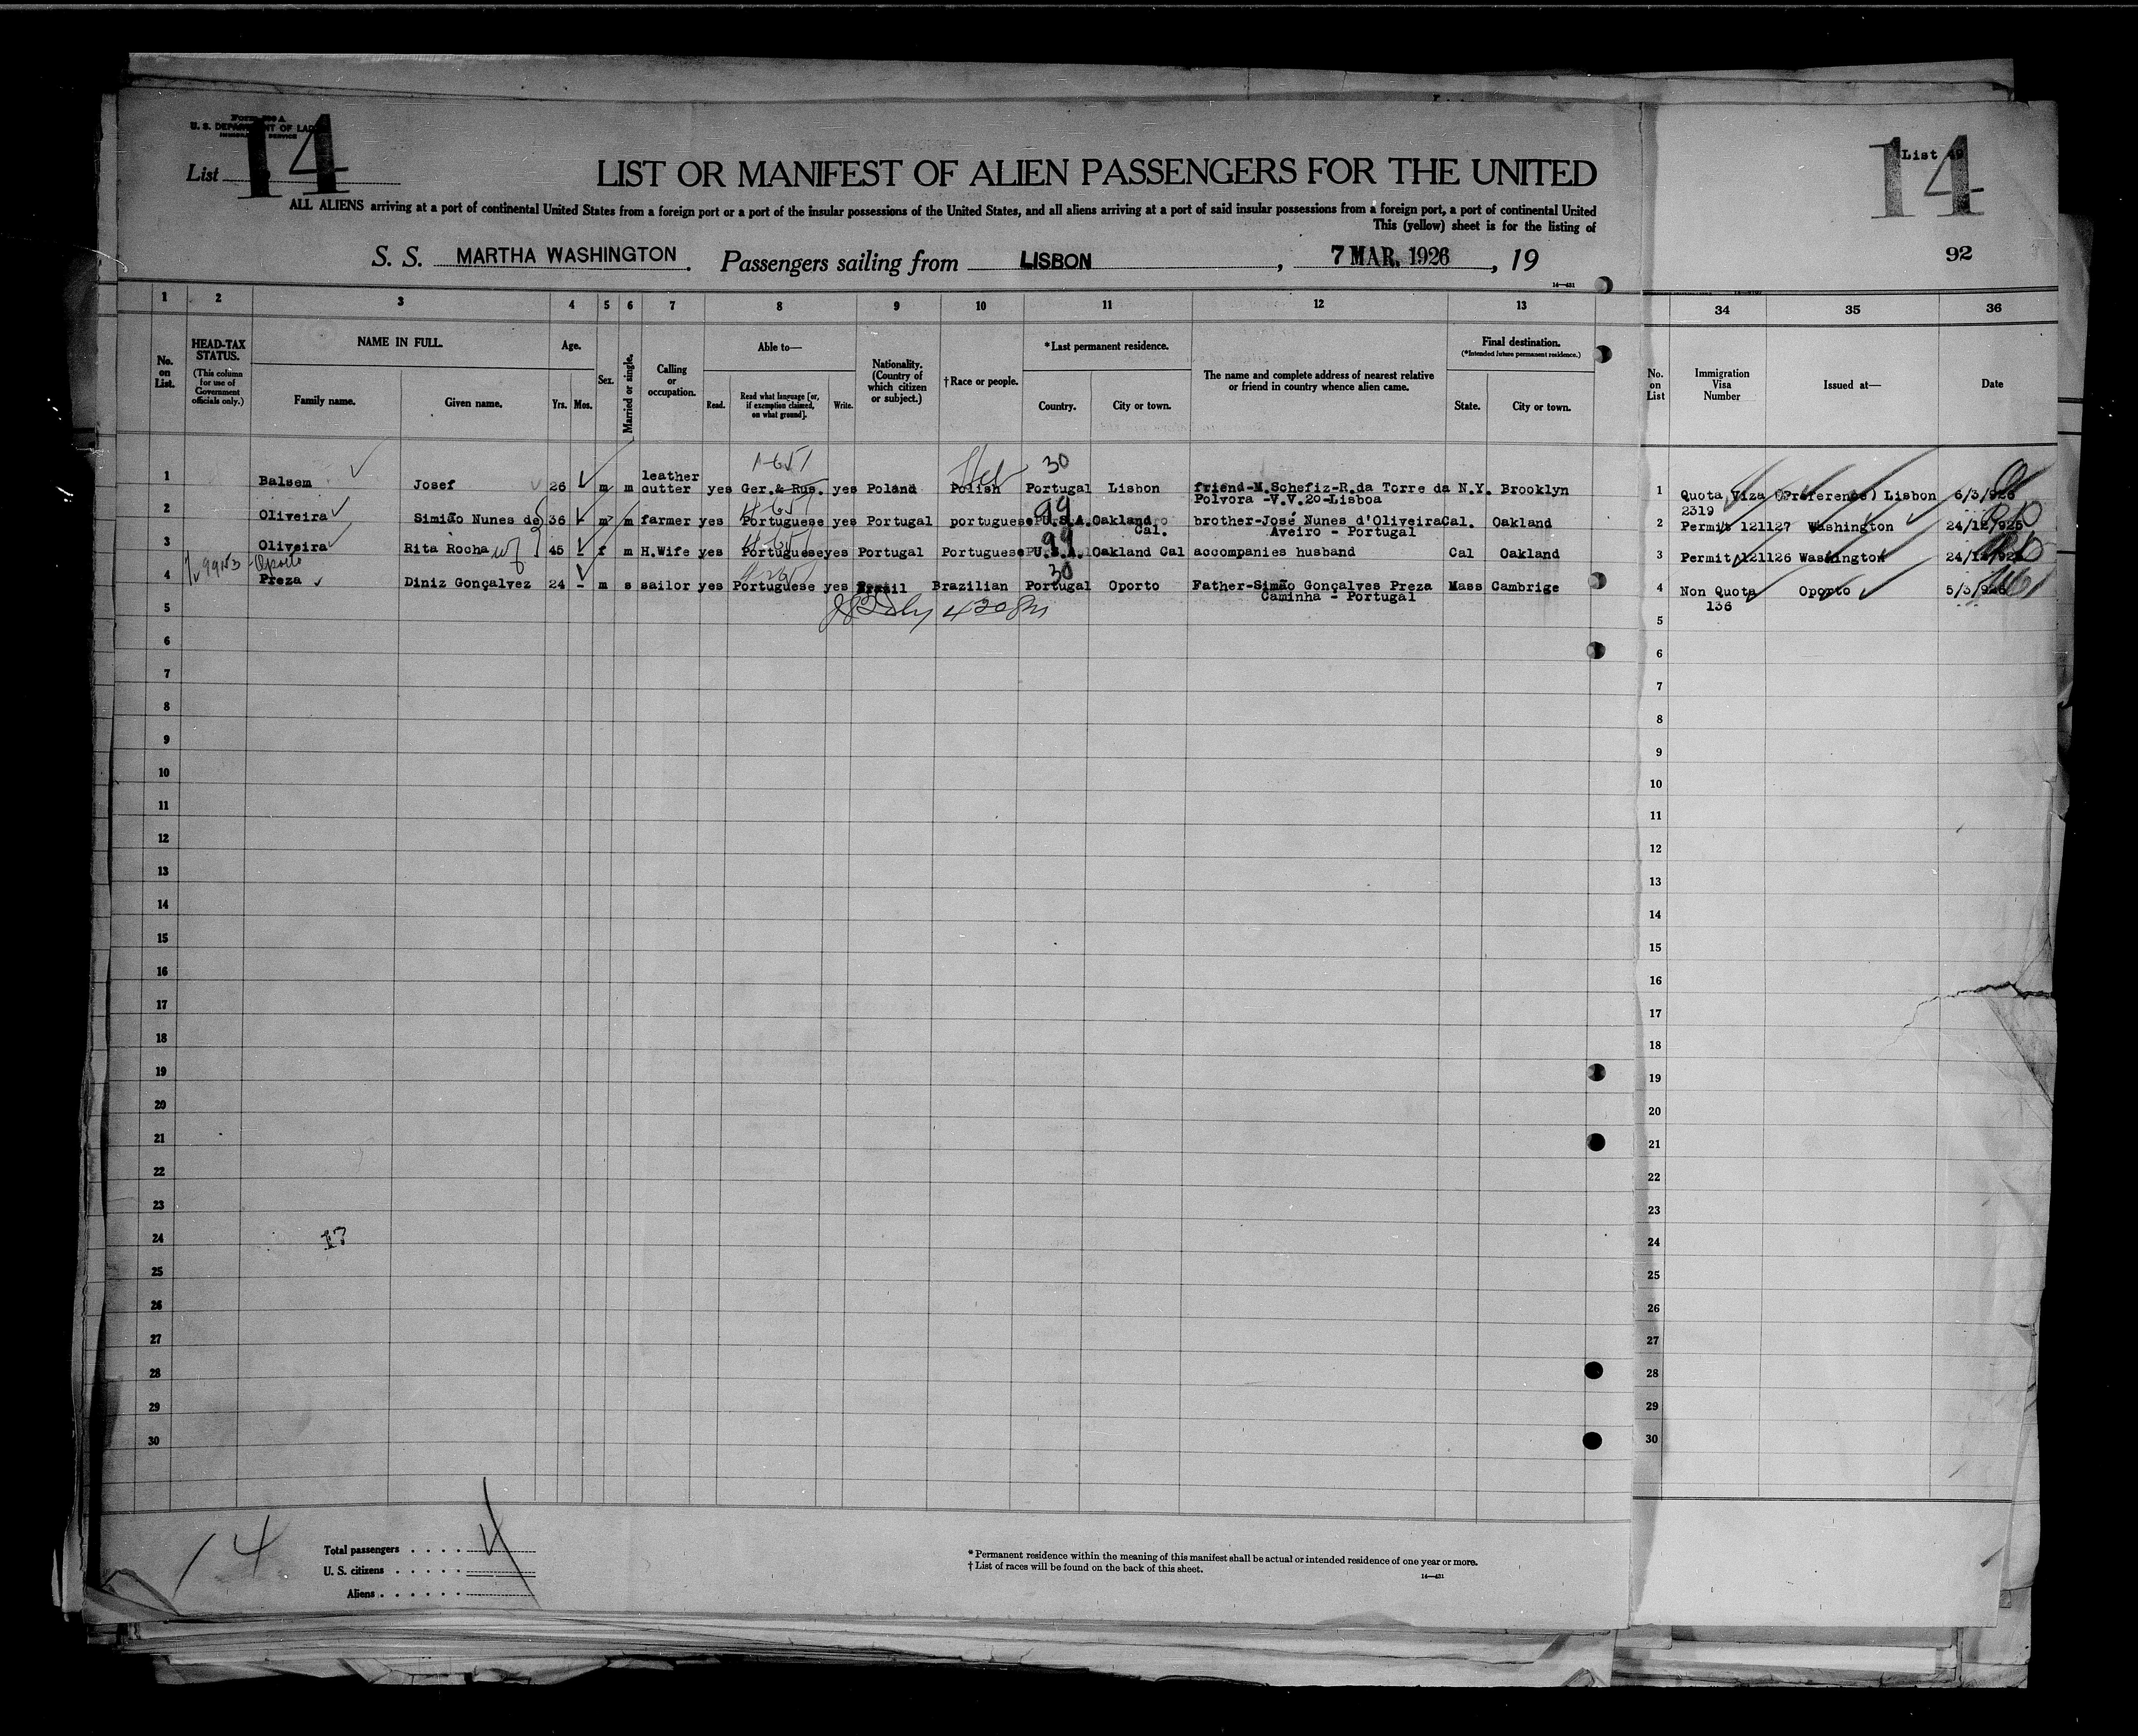 Form 500 A
U. S. DEPARTMENT OF LABOR
IMMIGRATION SERVICE
List 14
LIST OR MANIFEST OF ALIEN PASSENGERS FOR THE UNITED
ALL ALIENS arriving at a port of continental United States from a foreign port or a port of the insular possessions of the United States, and all aliens arriving at a port of said insular possessions from a foreign port, a port of continental United
This (yellow) sheet is for the listing of
S. S. MARTHA WASHINGTON. Passengers sailing from LISBON, 7 MAR. 1926, 19
14—431
List
14
92
1 2 3 4 5 6 7 8 9 10 11 12 13 34 35 36
No. on List.
HEAD-TAX STATUS.
(This column for use of Government officials only.)
NAME IN FULL.
Family name. Given name.
Age.
Yrs. Mos.
Sex.
Married or single.
Calling or occupation.
Able to—
Read. Read what language [or, if exemption claimed, on what ground]. Write.
Nationality. (Country of which citizen or subject.)
†Race or people.
*Last permanent residence.
Country. City or town.
The name and complete address of nearest relative or friend in country whence alien came.
Final destination.
(*Intended future permanent residence.)
State. City or town.
No. on List
Immigration Visa Number
Issued at—
Date
1 Balsem Josef 26 m m leather cutter yes Ger.& Rus. yes Poland Polish 30 Portugal Lisbon friend-M.Schefiz-R.da Torre da Polvora -V.V.20-Lisboa N.Y. Brooklyn
1 Quota Viza (Preference) Lisbon 6/3/926
2319
2 Oliveira Simião Nunes de 36 - m m farmer yes Portuguese yes Portugal portuguese 99 U.S.A. Oakland Cal. brother-José Nunes d'Oliveira Aveiro - Portugal Cal. Oakland
2 Permit 121127 Washington 24/12/925
3 Oliveira Rita Rocha wf 45 - f m H.Wife yes Portuguese yes Portugal Portuguese 99 U.S.A. Oakland Cal accompanies husband Cal Oakland
3 Permit 121126 Washington 24/12/925
Oporto
4 Preza Diniz Gonçalvez 24 - m s sailor yes Portuguese yes Brasil Brazilian 30 Portugal Oporto Father-Simão Gonçalves Preza Caminha - Portugal Mass Cambrige
4 Non Quota Oporto 5/3/926
136
5 5
6 6
7 7
8 8
9 9
10 10
11 11
12 12
13 13
14 14
15 15
16 16
17 17
18 18
19 19
20 20
21 21
22 22
23 23
24 17 24
25 25
26 26
27 27
28 28
29 29
30 30
14
Total passengers . . . . 4
U. S. citizens . . . . .
Aliens . . . . . .
* Permanent residence within the meaning of this manifest shall be actual or intended residence of one year or more.
† List of races will be found on the back of this sheet.
14—431